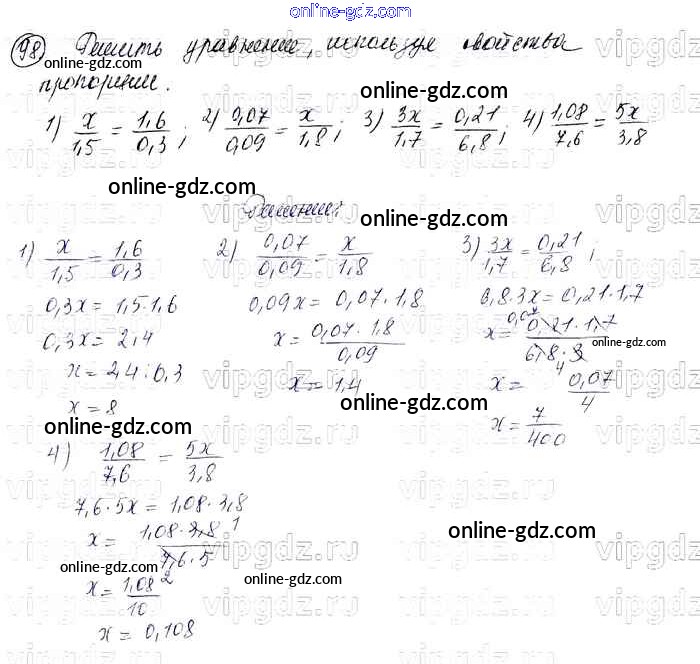 online-gdz.com
98) Решить уравнение, используя свойства
пропорции.
online-gdz.com
1) x/1,5 = 1,6/0,3; 2) 0,07/0,09 = x/1,8; 3) 3x/1,7 = 0,21/6,8; 4) 1,08/7,6 = 5x/3,8
online-gdz.com
online-gdz.com
online-gdz.com
Решение:
online-gdz.com
1) x/1,5 = 1,6/0,3
0,3x = 1,5·1,6
0,3x = 2,4
x = 2,4:0,3
x = 8
online-gdz.com
2) 0,07/0,09 = x/1,8
0,09x = 0,07·1,8
x = 0,07·1,8/0,09
x = 1,4
online-gdz.com
3) 3x/1,7 = 0,21/6,8;
6,8·3x = 0,21·1,7
x = 0,21·1,7/6,8·3
0,07
4
online-gdz.com
x = 0,07/4
x = 7/400
4) 1,08/7,6 = 5x/3,8
7,6·5x = 1,08·3,8
x = 1,08·3,8/7,6·5
1
2
online-gdz.com
x = 1,08/10
x = 0,108
online-gdz.com
online-gdz.com
vipgdz.ru